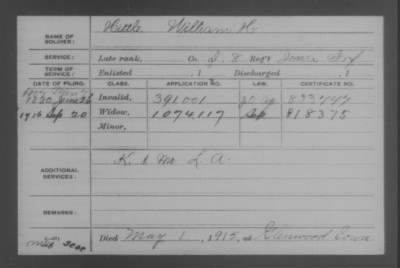 NAME OF SOLDIER: Hittle William H
SERVICE: Late rank, Co. I. 8 Reg't Iowa Inf
TERM OF SERVICE: Enlisted , 1 Discharged , 1
DATE OF FILING. CLASS. APPLICATION NO. LAW. CERTIFICATE NO.
1890 June 26 Invalid, 391.001 833444
1915 20 Widow, 1074.117 818375
Minor,
ADDITIONAL SERVICES: K. & Mo. L.A.
REMARKS:
Died May 1, 1915, at Glenwood Iowa